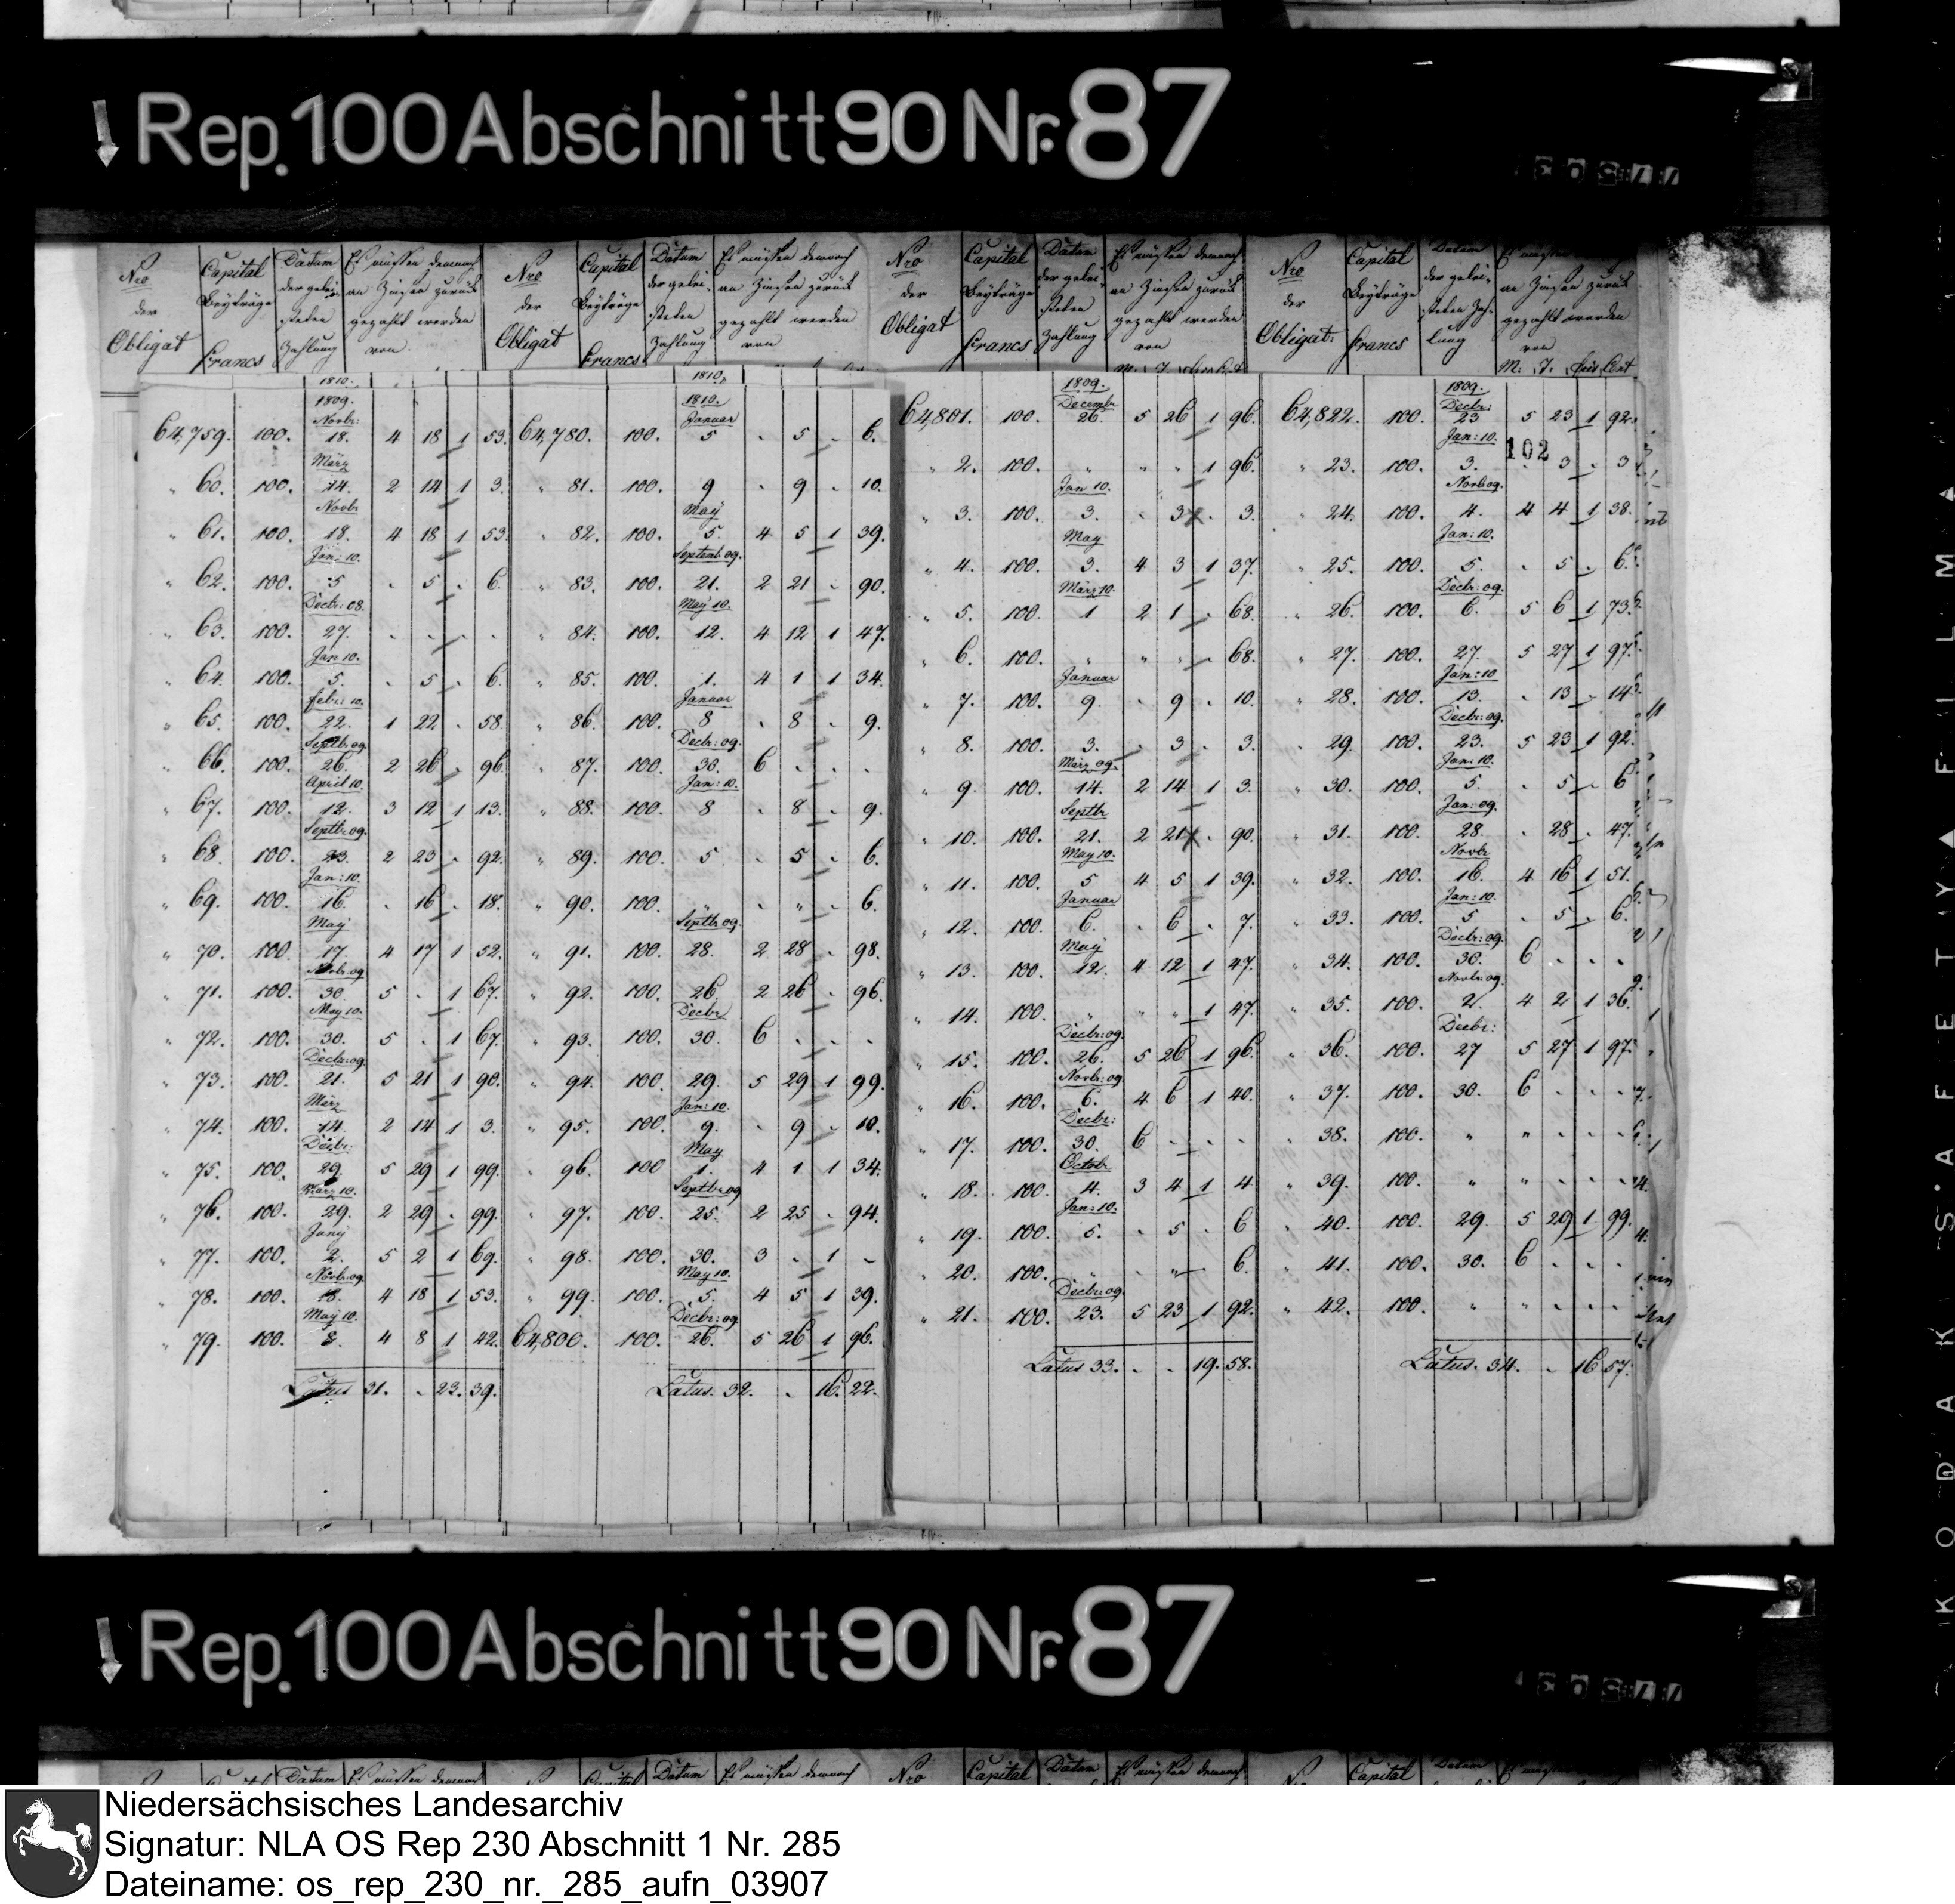 Rep. 100 Abschnitt 90 Nr. 87
Nro der Obligat
Capital Beyträge Francs
Datum der geleisteten Zahlung
Es müssen demnach an Zinsen zurück gezahlt werden von
Nro der Obligat
Capital Beyträge Francs
Datum der gelei- steten Zahlung
Es müssen demnach an Zinsen zurück gezahlt werden von
Nro der Obligat
Capital Beyträge Francs
Datum der gelei- steten Zahlung
Es müssen demnach an Zinsen zurück gezahlt werden von
Nro der Obligat:
Capital Beyträge Francs
Datum der gelei- steten Zah- lung
Es müssen an Zinsen zurück gezahlt werden von
M. T. Cent
1810.
1809.
Novbr:
64,759. 100. 18. 4 18 1 53.
März
" 60. 100. 14. 2 14 1 3.
Novbr
" 61. 100. 18. 4 18 1 53.
Jan: 10.
" 62. 100. 5 - 5 - 6.
Decbr: 08.
" 63. 100. 27. - - - -
Jan 10.
" 64. 100. 5. - 5 - 6.
Febr: 10.
" 65. 100. 22. 1 22 - 58.
Septbr. 09.
" 66. 100. 26. 2 26 - 96.
April 10.
" 67. 100. 12. 3 12 1 13.
Septbr. 09.
" 68. 100. 23. 2 23 - 92.
Jan: 10.
" 69. 100. 16. - 16 - 18.
May
" 70. 100. 17. 4 17 1 52.
Novbr: 09
" 71. 100. 30. 5 - 1 67.
May 10.
" 72. 100. 30. 5 - 1 67.
Decbr: 09
" 73. 100. 21. 5 21 1 90.
März
" 74. 100. 14. 2 14 1 3.
Decbr:
" 75. 100. 29. 5 29 1 99.
März 10.
" 76. 100. 29. 2 29 - 99.
Juny
" 77. 100. 2. 5 2 1 69.
Novbr: 09
" 78. 100. 18. 4 18 1 53.
May 10.
" 79. 100. 8. 4 8 1 42.
Latus 31. - 23. 39.
1810.
1810.
Januar
64,780. 100. 5 - 5 - 6.
" 81. 100. 9 - 9 - 10.
May
" 82. 100. 5. 4 5 1 39.
Septemb. 09.
" 83. 100. 21. 2 21 - 90.
May 10.
" 84. 100. 12. 4 12 1 47.
" 85. 100. 1. 4 1 1 34.
Januar
" 86. 100. 8 - 8 - 9.
Decbr: 09.
" 87. 100. 30. 6 - - -
Jan: 10.
" 88. 100. 8 - 8 - 9.
" 89. 100. 5 - 5 - 6.
" 90. 100. " - " - 6.
Septbr 09.
" 91. 100. 28. 2 28 - 98.
" 92. 100. 26 2 26 - 96.
Decbr
" 93. 100. 30. 6 - - -
" 94. 100. 29. 5 29 1 99.
Jan: 10.
" 95. 100. 9. - 9 - 10.
May
" 96. 100 1. 4 1 1 34.
Septbr 09
" 97. 100. 25. 2 25 - 94.
" 98. 100. 30. 3 - 1 -
May 10.
" 99. 100. 5. 4 5 1 39.
Decbr: 09
64,800. 100. 26. 5 26 1 96.
Latus. 32. - 16. 22.
1809.
Decembr
64,801. 100. 26. 5 26 1 96.
" 2. 100. " " " 1 96.
Jan 10.
" 3. 100. 3. - 3 - 3.
May
" 4. 100. 3. 4 3 1 37.
März 10.
" 5. 100 1 2 1 - 68.
" 6. 100. " " " - 68.
Januar
" 7. 100. 9. - 9 - 10.
" 8. 100. 3. - 3 - 3.
März 09.
" 9. 100. 14. 2 14 1 3.
Septbr
" 10. 100. 21. 2 21 - 90.
May 10.
" 11. 100. 5 4 5 1 39.
Januar
" 12. 100. 6. - 6 - 7.
May
" 13. 100. 12. 4 12 1 47.
" 14. 100. " " " 1 47.
Decbr: 09.
" 15. 100. 26. 5 26 1 96.
Novbr: 09
" 16. 100. 6. 4 6 1 40.
Decbr:
" 17. 100. 30. 6 - - -
Octobr
" 18. 100. 4. 3 4 1 4
Jan: 10.
" 19. 100. 5. - 5 - 6
" 20. 100. " - " - 6.
Decbr: 09
" 21. 100. 23. 5 23 1 92.
Latus 33. - - 19. 58.
1809.
Decbr:
64,822. 100. 23 5 23 1 92.
102
Jan: 10.
" 23. 100. 3. - 3 - 3
Novb 09.
" 24. 100. 4. 4 4 1 38.
Jan: 10.
" 25. 100. 5. - 5 - 6.
Decbr: 09.
" 26. 100. 6. 5 6 1 73.
" 27. 100. 27. 5 27 1 97.
Jan: 10
" 28. 100. 13. - 13 - 14
Decbr: 09.
" 29. 100. 23. 5 23 1 92.
Jan: 10.
" 30. 100. 5. - 5 - 6
Jan: 09.
" 31. 100. 28. - 28 - 47.
Novbr
" 32. 100. 16. 4 16 1 51.
Jan: 10.
" 33. 100. 5 - 5 - 6.
Decbr: 09
" 34. 100. 30. 6 - - -
Novbr: 09
" 35. 100. 2. 4 2 1 36.
Decbr:
" 36. 100. 27 5 27 1 97.
" 37. 100. 30. 6 - - -
" 38. 100. " " - - -
" 39. 100. " " - - -
" 40. 100. 29. 5 29 1 99.
" 41. 100. 30. 6 - - -
" 42. 100. " " - - -
Latus. 34. - 16 57.
Rep. 100 Abschnitt 90 Nr. 87
KODAK SAFETY FILM
Niedersächsisches Landesarchiv
Signatur: NLA OS Rep 230 Abschnitt 1 Nr. 285
Dateiname: os_rep_230_nr._285_aufn_03907